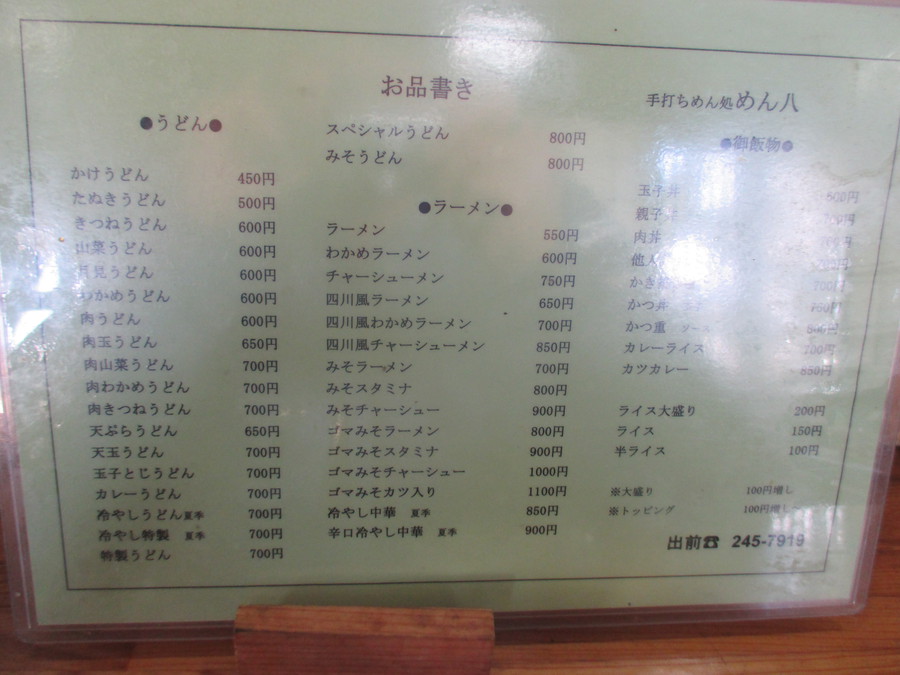 お品書き
手打ちめん処 めん八
●うどん●
かけうどん 450円
たぬきうどん 500円
きつねうどん 600円
山菜うどん 600円
月見うどん 600円
わかめうどん 600円
肉うどん 600円
肉玉うどん 650円
肉山菜うどん 700円
肉わかめうどん 700円
肉きつねうどん 700円
天ぷらうどん 650円
天玉うどん 700円
玉子とじうどん 700円
カレーうどん 700円
冷やしうどん 夏季 700円
冷やし特製 夏季 700円
特製うどん 700円
スペシャルうどん 800円
みそうどん 800円
●ラーメン●
ラーメン 550円
わかめラーメン 600円
チャーシューメン 750円
四川風ラーメン 650円
四川風わかめラーメン 700円
四川風チャーシューメン 850円
みそラーメン 700円
みそスタミナ 800円
みそチャーシュー 900円
ゴマみそラーメン 800円
ゴマみそスタミナ 900円
ゴマみそチャーシュー 1000円
ゴマみそカツ入り 1100円
冷やし中華 夏季 850円
辛口冷やし中華 夏季 900円
●御飯物●
玉子丼 500円
親子丼 700円
肉丼
他人
かき 700円
かつ丼 750円
かつ重 ソース 800円
カレーライス 700円
カツカレー 850円
ライス大盛り 200円
ライス 150円
半ライス 100円
※大盛り 100円増し
※トッピング 100円増し～
出前☎ 245-7919